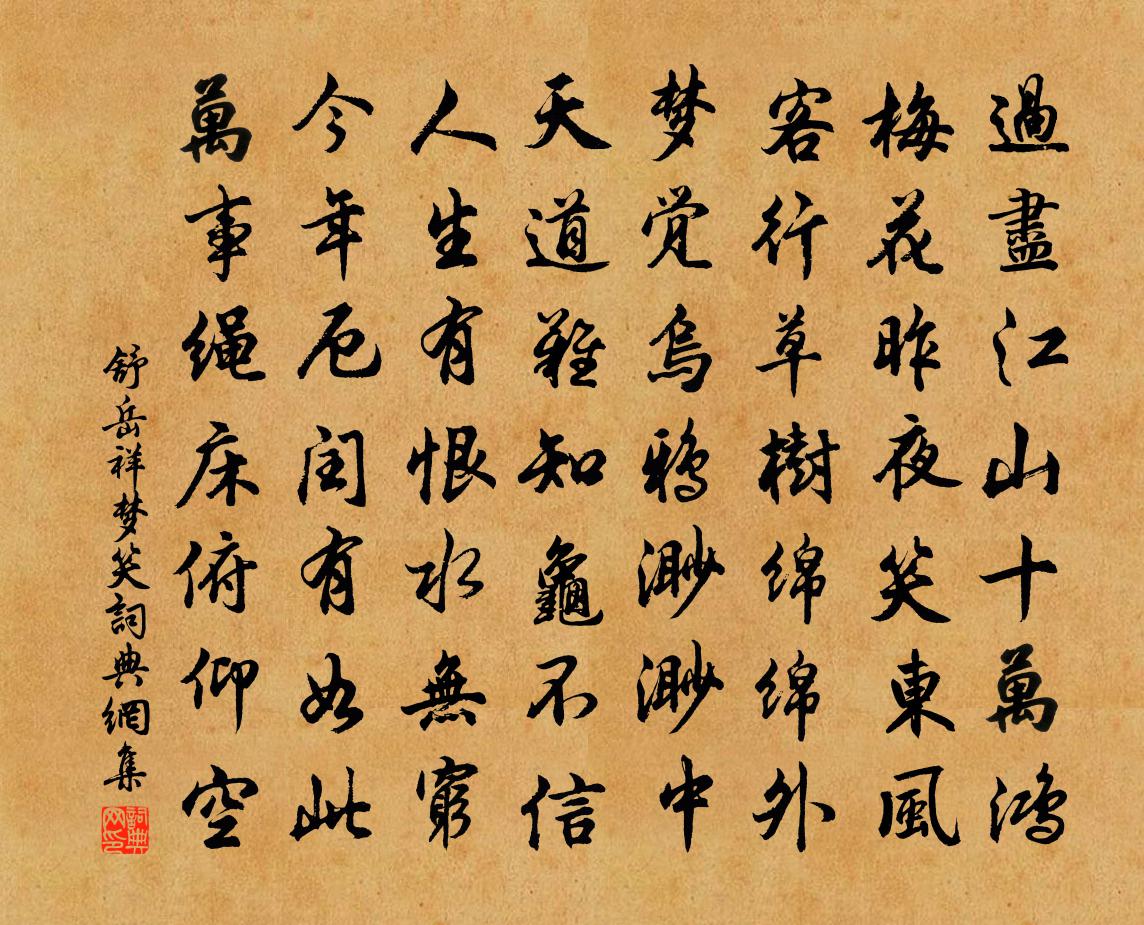 過盡江山十萬鴻
梅花昨夜笑東風
客行草樹綿綿外
梦觉烏鴉渺渺中
天道難知龜不信
人生有恨水無窮
今年厄闰有如此
萬事绳床俯仰空
舒岳祥梦笑詞典網集
詞典网印